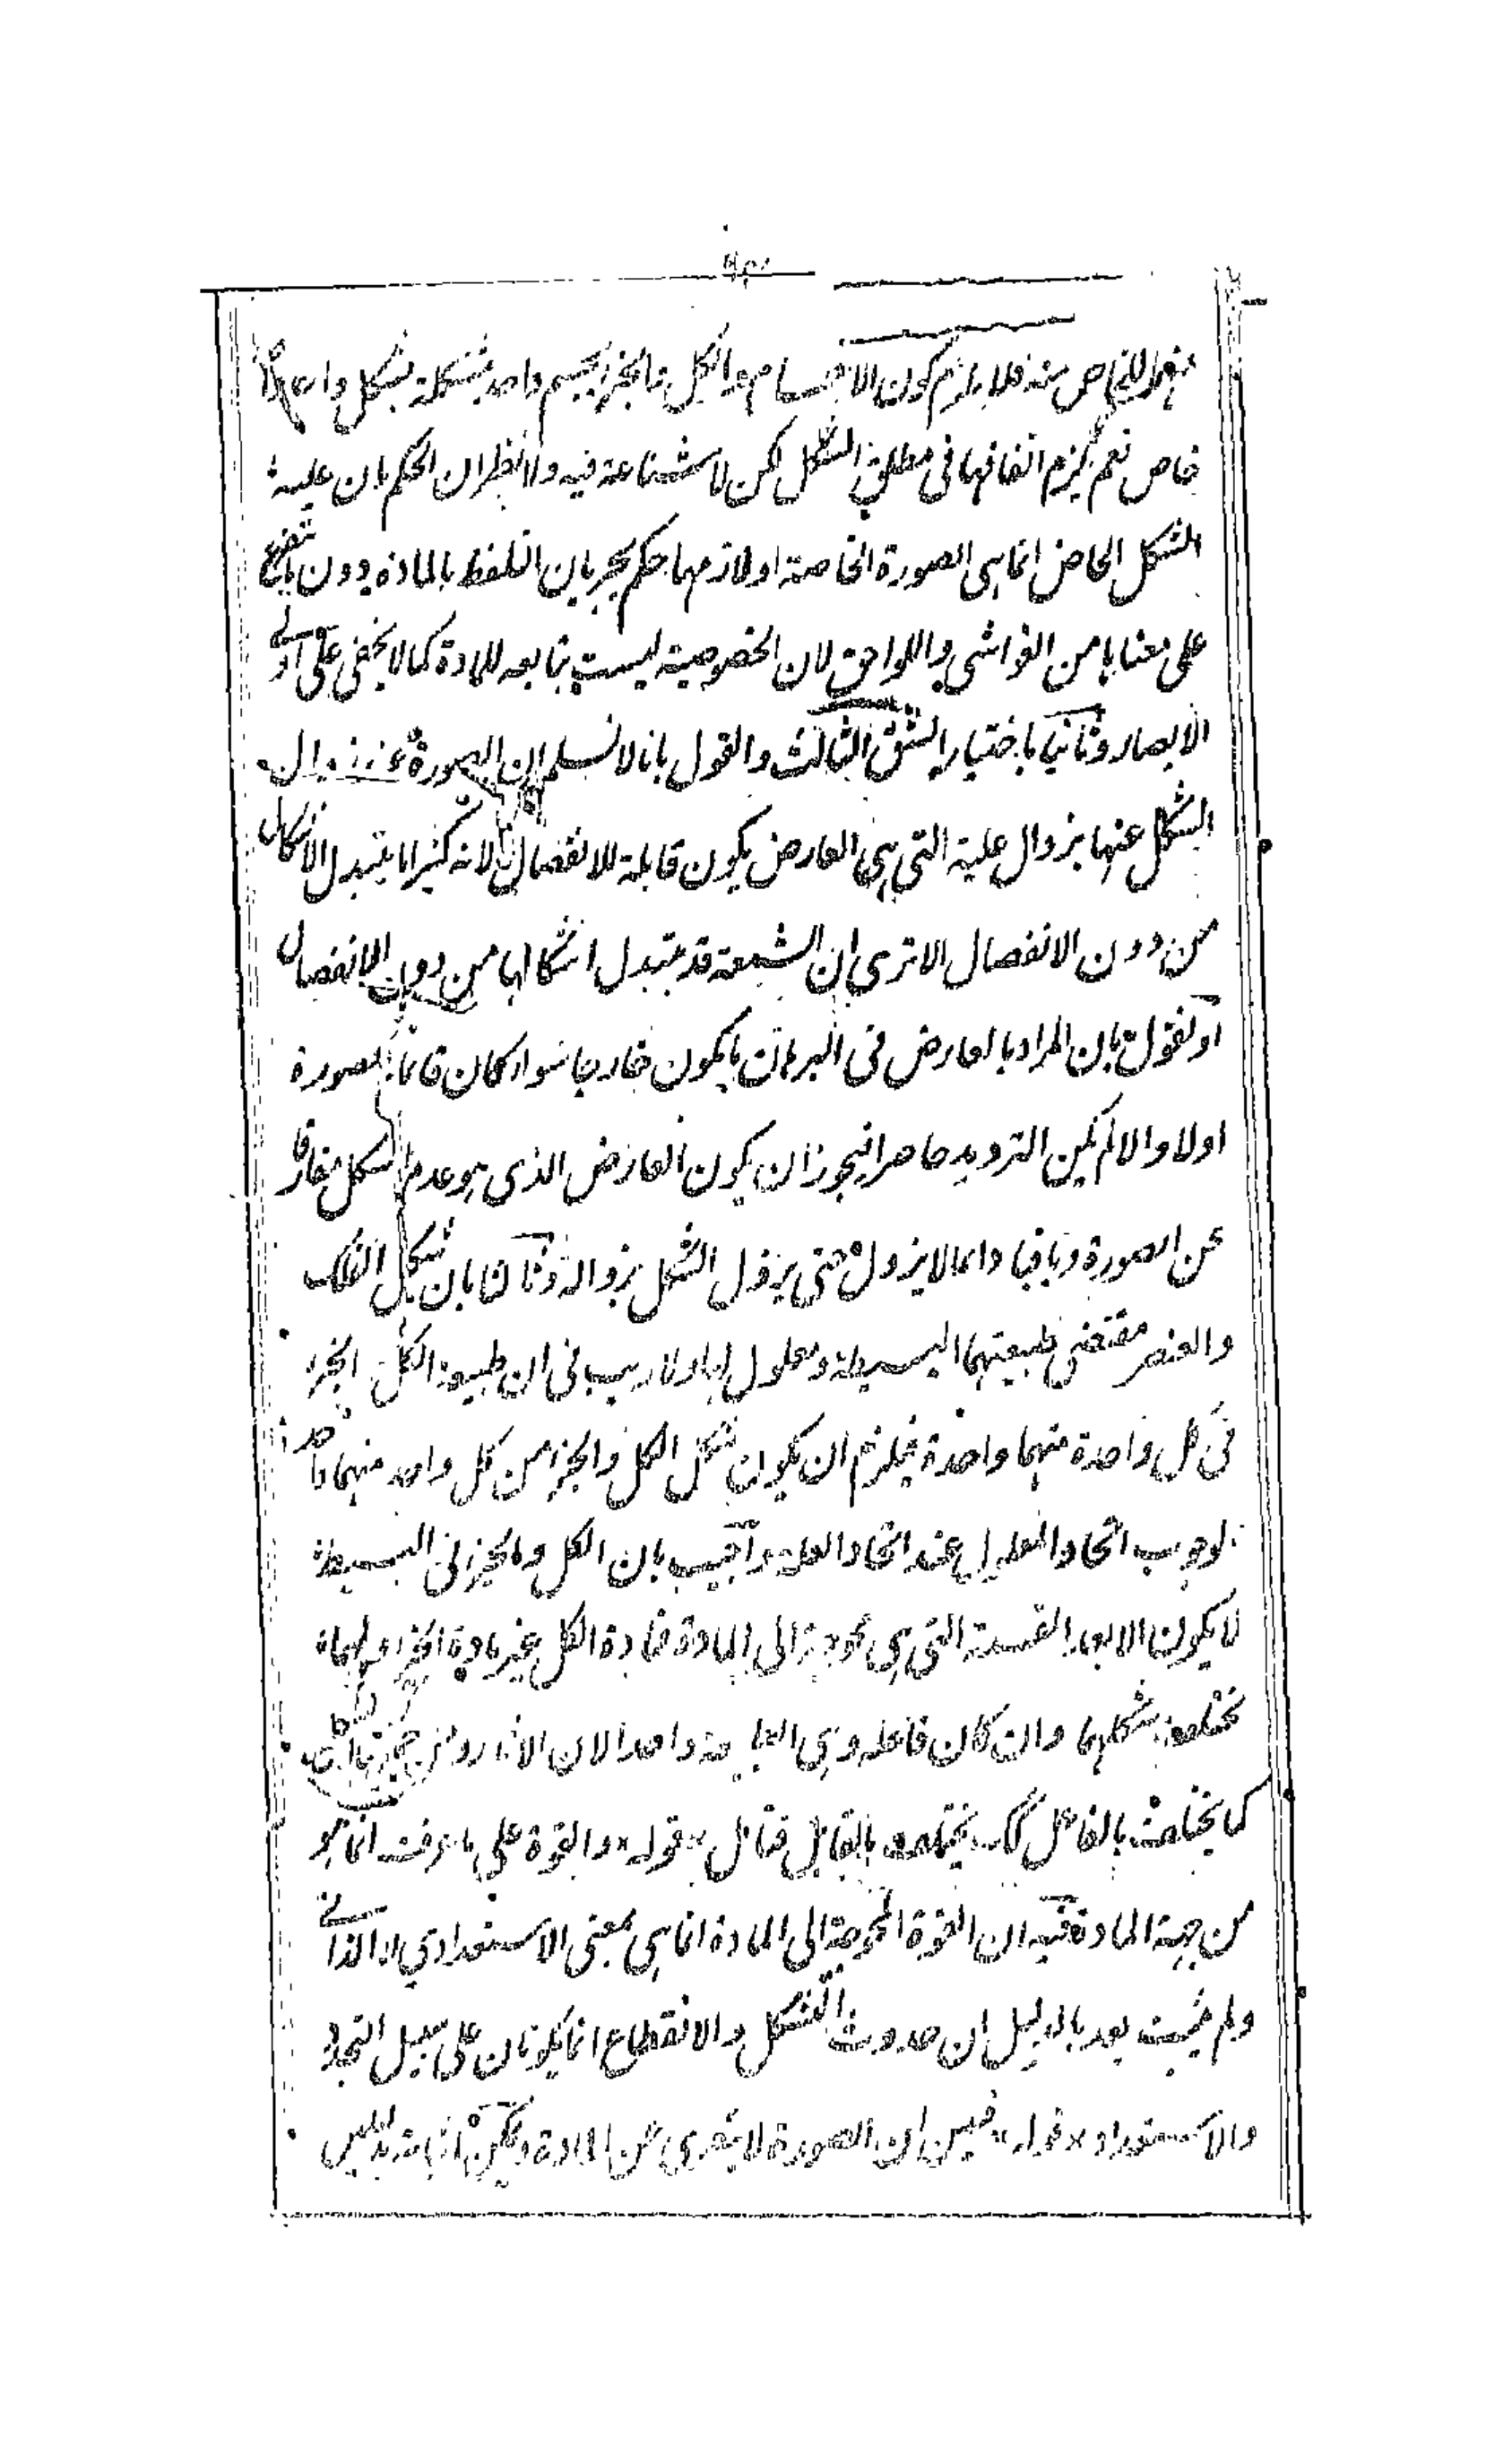 الخاص منه فلا يلزم كون الاجسام والكل والجزء كجسم واحد متشكلة بشكل واحد
خاص نعم يلزم اتفاقها فى مطلق الشكل لكن لا شناعة فيه والانظر ان الحكم بان علية
الشكل الخاص انما هى الصورة الخاصة او لازمها حكم بجريان التلفظ بالمادة دون
على معناها من الغواشى واللواحق لان الخصوصية ليست بتابعه للمادة كما لا يخفى على اولے
الابصار وثانيا باختيار الشق الثالث والقول بانا لا نسلم ان الصورة عند زوال
الشكل عنها بزوال علية التى هى العارض يكون قابلة للانفصال لانه كثيرا ما يتبدل الاشكال
من دون الانفصال الا ترى ان الشمعة قد يتبدل اشكالها من دون الانفصال
او نقول بان المراد بالعارض فى البرهان ما يكون خارجا سواء كان قائما بالصورة
اولا والا لم يكن الترديد حاصرا فيجوز ان يكون العارض الذى هو عدم الشكل مفارقا
عن الصورة وباقيا دائما لا يزول حتى يزول الشكل بزواله وثالثا بان شكل الفلك
والعنصر مقتضى طبيعتهما البسيطة ومعلول لها ولا ريب فى ان طبيعة الكل الجزء
فى كل واحدة منهما واحدة فيلزم ان يكون شكل الكل والجزء من كل واحد منهما واحدا
لوجوب اتحاد المعلول عند اتحاد العلة واجيب بان الكل والجزء فى البسيطة
لا يكون الا بعد القسمة التى هى محوجة الى المادة فمادة الكل غير مادة الجزء
مختلف شكلهما وان كان فاعله وهى الطبيعة واحدا لان الاثر
كما يختلف بالفاعل كك يختلف بالقابل فتامل قوله والقوة على ما عرفت انما هو
من جهة المادة فيه ان القوة المحوجة الى المادة انما هى بمعنى الاستعدادي لا الذاتے
ولم يثبت بعد بالدليل ان حدوث التشكل والانقطاع انما يكونان على سبيل التجدد
والاستعداد قوله فتبين ان الصورة لا يتعرى عن المادة ويمكن اثباته بدليل